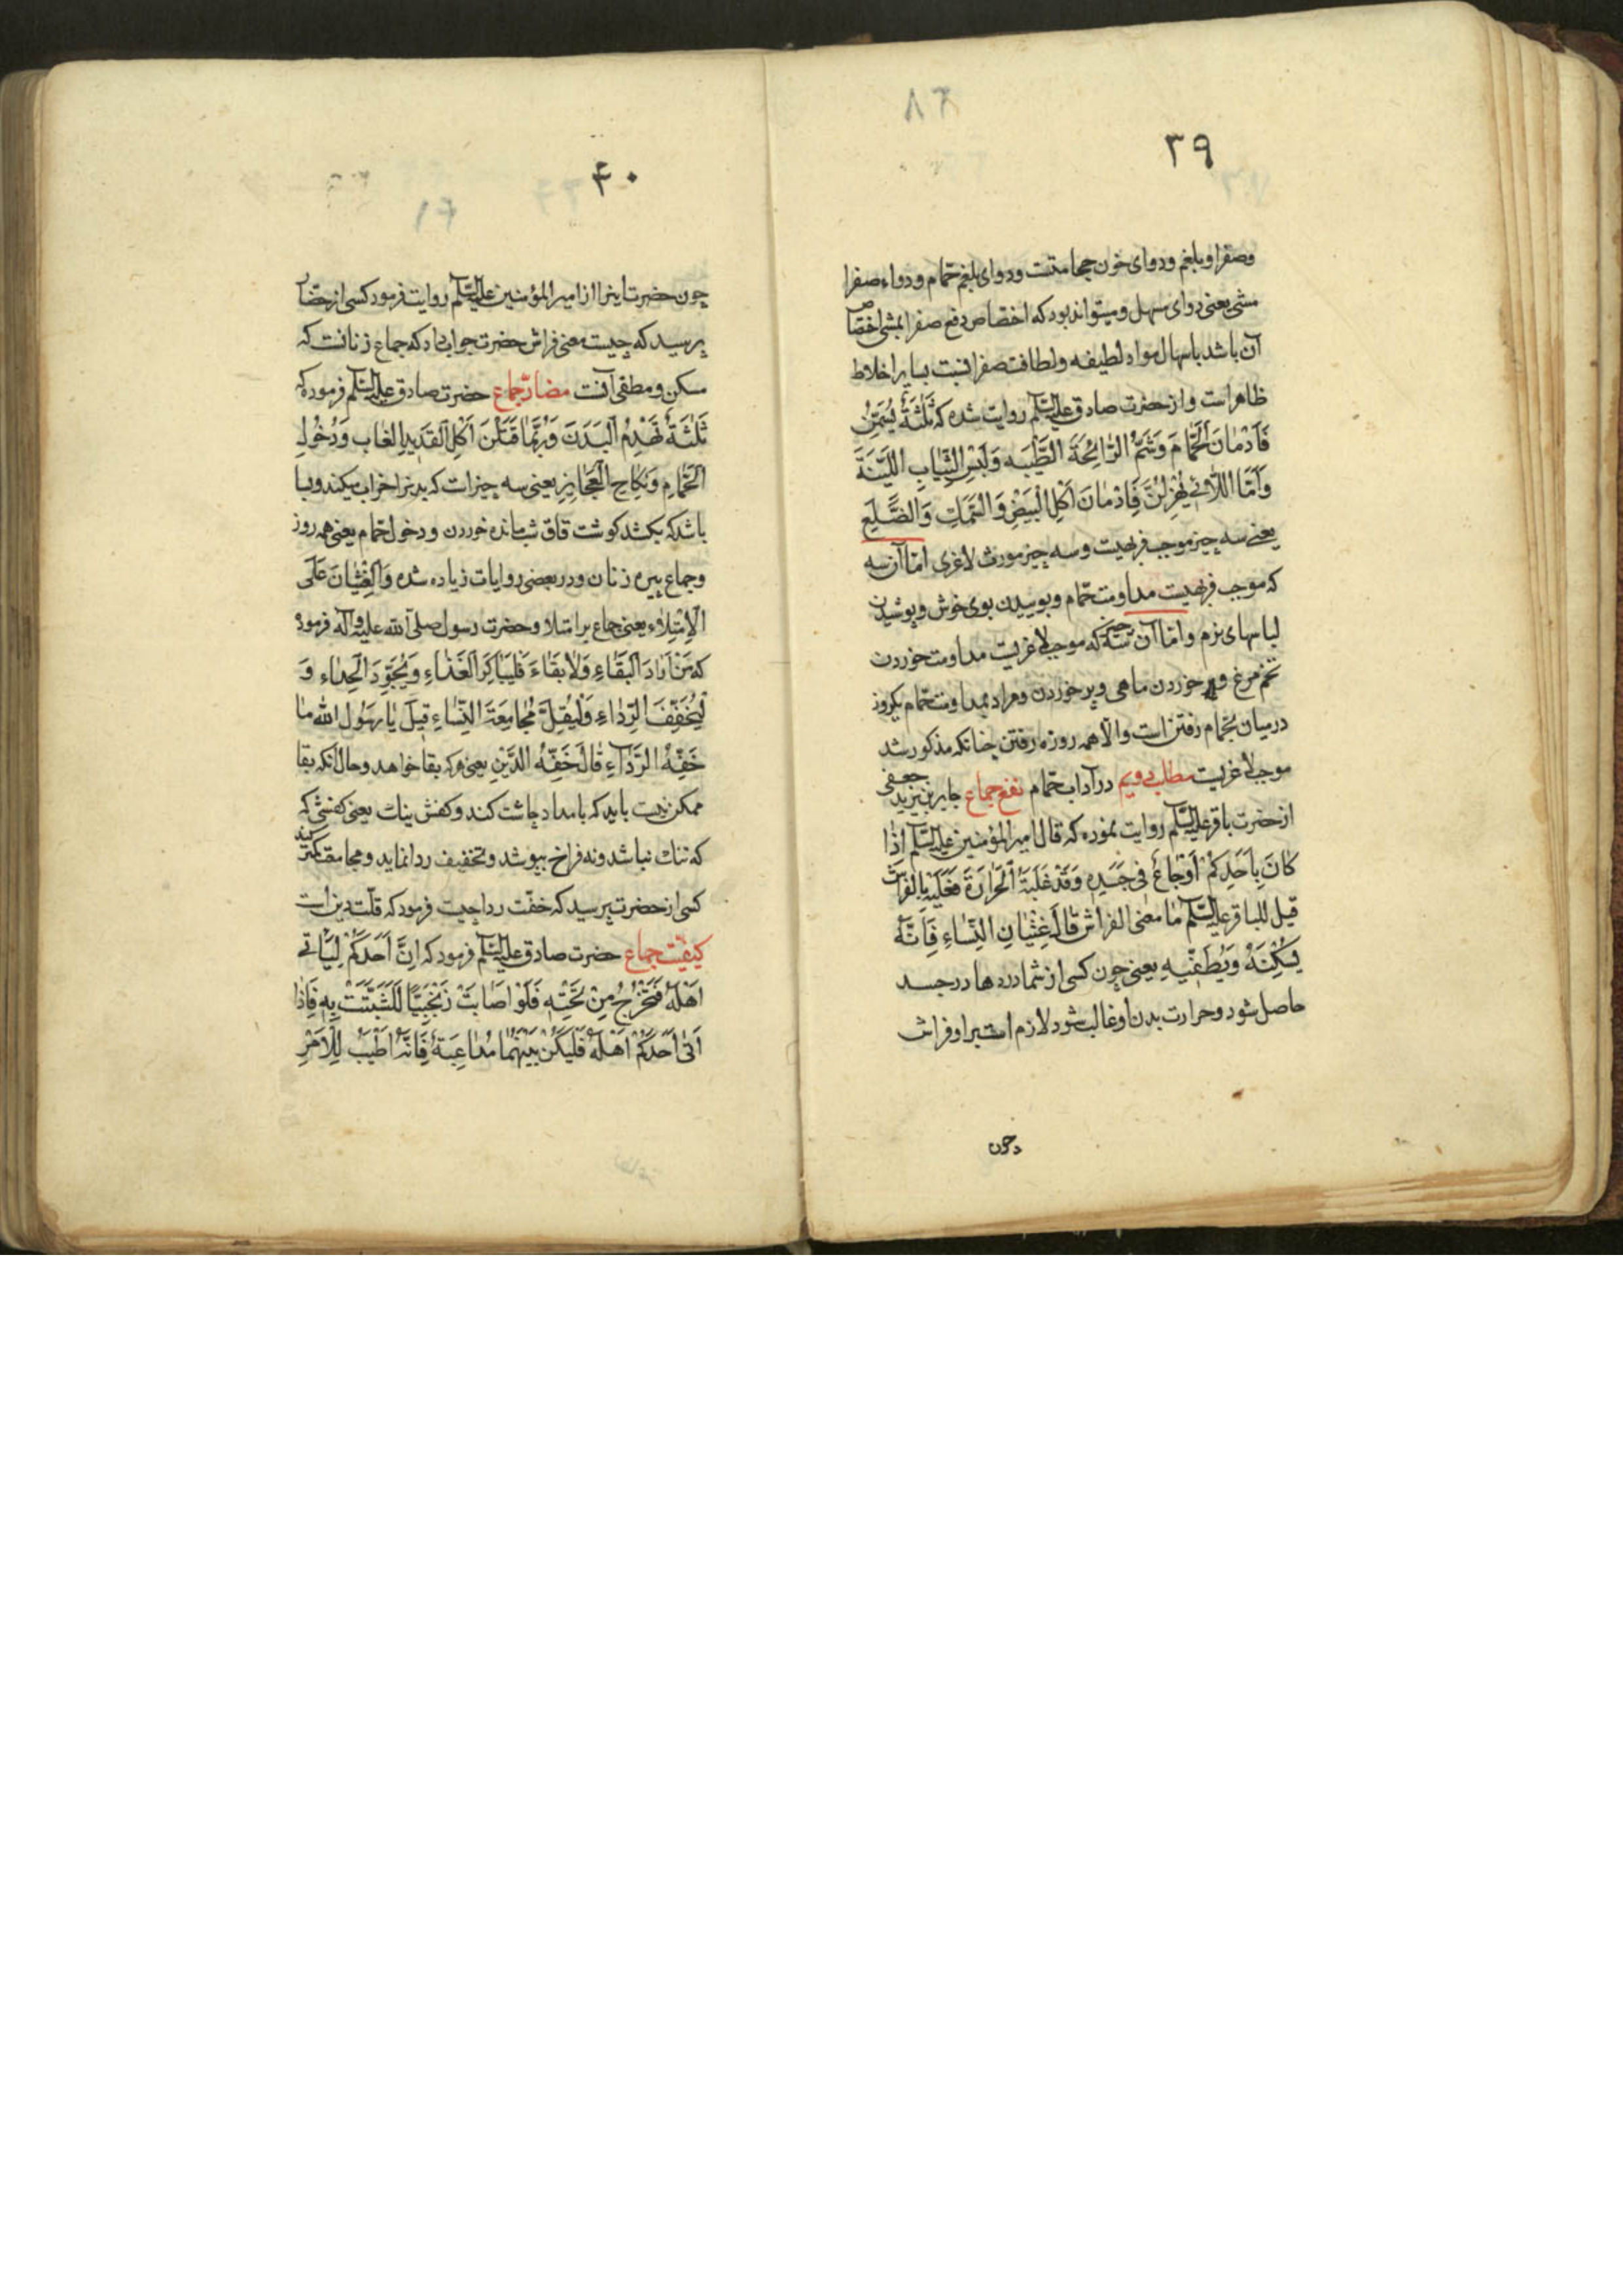 ۳۹
وصفرا و بلغم و دوای خون حجامتست و دوای بلغم حمّام و دواء صفرا
مشی یعنی دوای مسهل و میتواند بود که اختصاص دفع صفرا بمشی اختصاص
آن باشد باسهال مواد لطیفه و لطافت صفرا نسبت بسایر اخلاط
ظاهر است و از حضرت صادق علیه السّلم روایت شده که ثَلٰثَةٌ یُسَمِّنَّ
فَاَدْمٰانَ الْحَمّٰامِ وَشَمُّ الرّٰائِحَةِ الطَّیِّبَه وَلَبْسِ الثِّیٰابِ اللَّیِّنَةَ
وَاَمَّا اللّاٰتی یُهْزِلْنَّ فَاِدْمٰانَ اَکْلِ الْبَیَضْ وَالسَّمَكِ وَالضَّلِعِ
یعنی سه چیز موجب فربهیست و سه چیز مورث لاغری امّا آن سه
که موجب فربهیست مداومت حمّام و بوییدن بوی خوش و پوشیدن
لباسهای نرم و امّا آن سه چیز که موجب لاغریست مداومت خوردن
تخم مرغ و خوردن ماهی و پر خوردن و مراد بمداومت حمّام یکروز
درمیان بحمام رفتن است والّا همه روزه رفتن چنانکه مذکور شد
موجب لاغریست مطلب دویم در آداب حمّام نفع جماع جابر بن یزید جعفی
از حضرت باقر علیه السّلم روایت نموده که قال امیر المؤمنین علیه السّلم اِذٰا
کٰانَ بِاَحَدِکُمْ اَوْجٰاعٌ فی جَسَدِهِ وَقَدْ غَلَبَةُ الْحَرٰارَةَ فَعَلَیْهِ بِالْفَرٰاشِ
قیل للباقر علیه السّلم مٰا معنی الفراش قٰالَ غِشْیٰانِ النِّسٰاءِ فَاِنَّهُ
یُسْکِنَهُ وَیُطْفیهِ یعنی چون کسی از شما دردها در جسد
حاصل شود و حرارت بدن او غالب شود لازم است براو فراش
چون
۴۰
چون حضرت اینرا از امیر المؤمنین علیه السّلم روایت فرمود کسی از حضّار
پرسید که چیست معنی فراش حضرت جواب داد که جماع زنانست که
مسکن و مطفی آنست مضارّ جماع حضرت صادق علیه السّلم فرموده که
ثَلٰثَةٌ تَهْدِمُ الْبَدَنَ وَرُبَّمٰا قَتَلْنَ اَکْلِ الْقَدیدِ الغاب وَدُخُولِ
الْحَمّٰامِ وَنِکٰاحِ الْعَجٰائِزِ یعنی سه چیزاست که بدنرا خراب میکند و بسا
باشد که بکشد کوشت قاق شب مانده خوردن و دخول حمّام یعنی همه روز
وجماع پیره زنان ودر بعضی روایات زیاده شده وَالْغِشْیٰانَ عَلَی
الْاِمْتِلٰاءِ یعنی جماع بر امتلا و حضرت رسول صلی الله علیه وآله فرموده
که مَنْ اَرٰادَ الْبَقٰاءِ وَلاٰ بَقٰاءَ فَلْیُبٰاکِرَ الْغَذٰاءِ وَیُجَوِّدَ الْحِذٰاءِ وَ
لْیُخَفِّفَ الرِّدٰاءِ وَلْیُقِلَّ مُجٰامِعَةَ النِّسٰاءِ قیلَ یٰا رَسُول الله مٰا
خَفِّهُ الرَّدٰاءِ قٰالَ خَفِّهُ الدَّیْنِ یعنی هرکه بقا خواهد وحال آنکه بقا
ممکن نیست باید که بامداد چاشت کند و کفش ینات یعنی کفشی که
که تنك نباشد ونه فراخ بپوشد وتخفیف ردا نماید ومجامعت کمتر کند
کسی از حضرت پرسید که خفّت ردا چیست فرمود که قلّت دین است
کیفیّت جماع حضرت صادق علیه السّلم فرمود که اِنَّ اَحَدَکُمْ لَیَاْتی
اَهْلَهُ فَتَخْرُجُ مِنْ تَحْتِهِ فَلَوْ اَصٰابَتْ زَنْجِیّاً لَتَشَبَّثَتْ بِهِ فَاِذٰا
اَتٰی اَحَدَکُمْ اَهْلَهُ فَلْیَکُنْ بَیْنَهُمٰا مُدٰاعِبَةُ فَاِنَّهُ اَطْیَبُ لِلْاَمْرِ